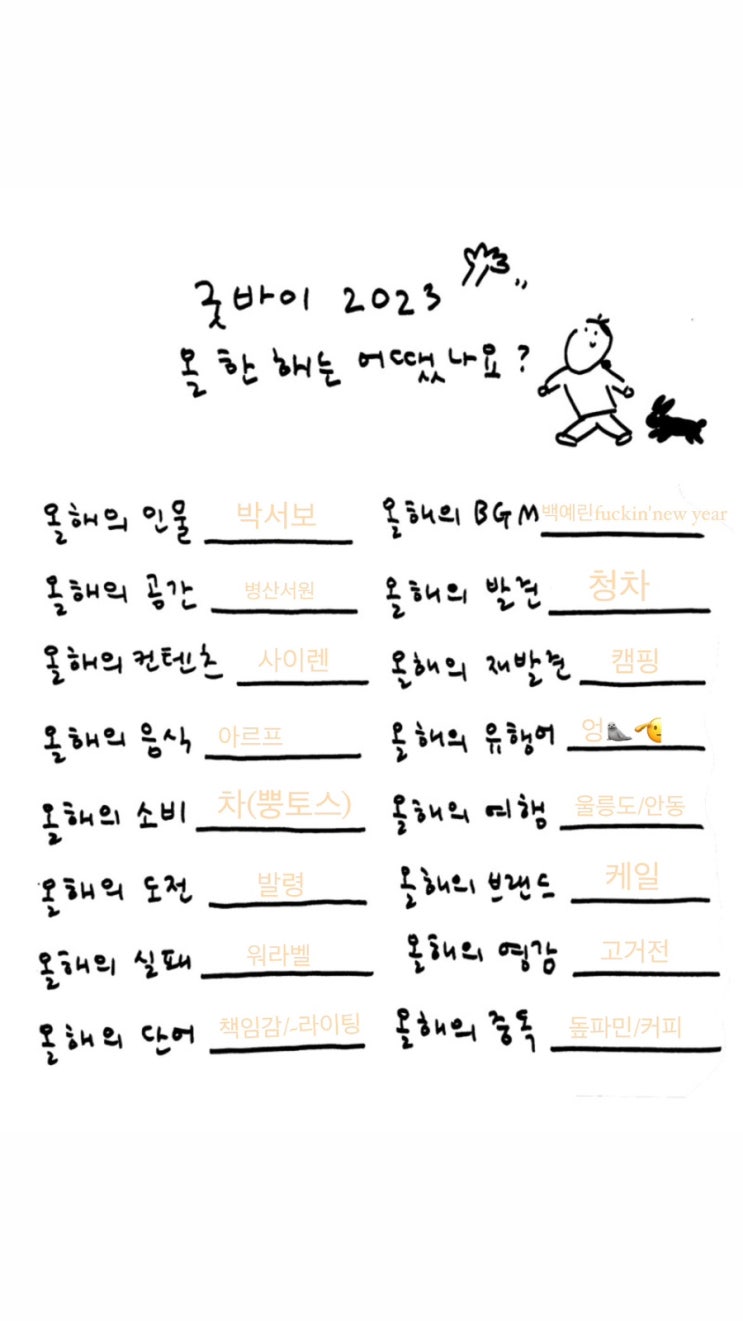 굿바이 2023
올 한 해는 어땠나요?
올해의 인물 박서보
올해의 BGM 백예린fuckin'new year
올해의 공간 병산서원
올해의 발견 청차
올해의 컨텐츠 사이렌
올해의 재발견 캠핑
올해의 음식 아르프
올해의 유행어 엉🦭🫡
올해의 소비 차(뿅토스)
올해의 여행 울릉도/안동
올해의 도전 발령
올해의 브랜드 케일
올해의 실패 워라벨
올해의 영감 고거전
올해의 단어 책임감/-라이팅
올해의 중독 돞파민/커피